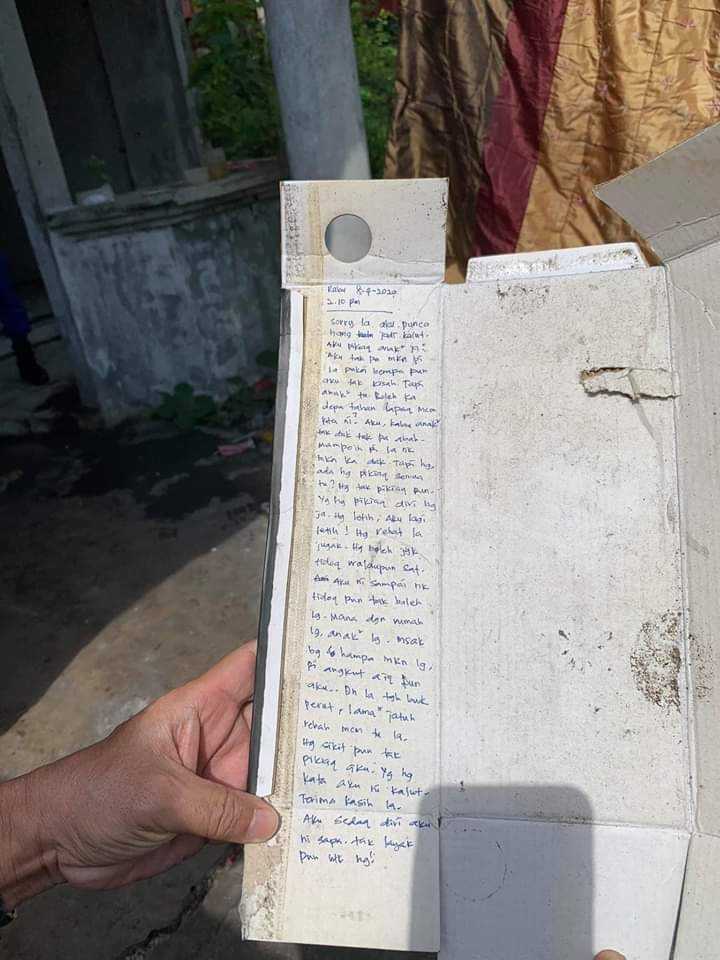 Rabu 8-4-2020
2.10 pm
Sorry la aku punca
hang jadi kalut.
Aku pikiaq anak² ja.
Aku tak pa mkn pi
la pukoi berapa pun
aku tak kisah. Tapi
anak² tu boleh ka
depa tahan lapaq mcm
kita ni? Aku, kalau anak²
tak dak tak pa abah.
Mampoih pi la nk
mkn ka dak. Tapi hg,
ada hg pikiaq semua
tu? Hg tak pikiaq pun.
Yg hg pikiaq diri hg
ja. Hg letih, Aku lagi
letih! Hg rehat la
jugak. Hg boleh jgk
tidoq walaupun sat.
Aku ni sampai nk
tidoq pun tak boleh
lg. Mana dgn rumah
lg, anak² lg. Msak
bg hampa mkn lg,
pi angkut aiq pun
aku.. Dh la tgh buk
perut, lama² jatuh
rebah mcm tu la.
Hg sikit pun tak
pikiaq aku. Yg hg
kata aku ni kalut.
Terima kasih la.
Aku sedaq diri aku
ni sapa. tak layak
pun utk hg!